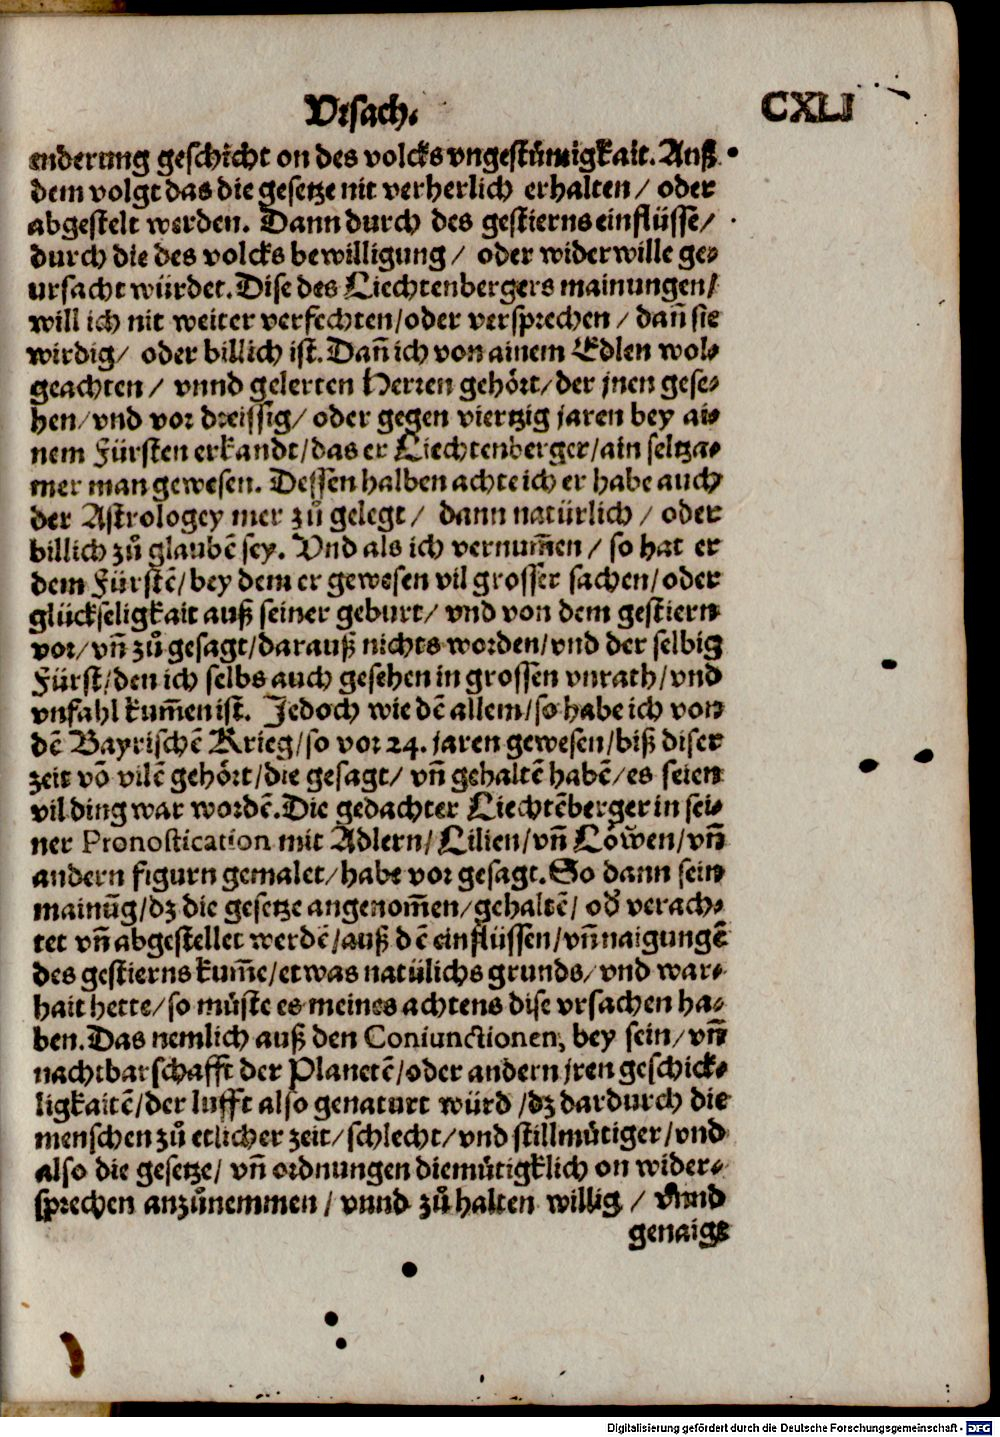 Vrsach.
CXLI
enderung geschicht on des volcks vngestümigkait. Auß
dem volgt das die gesetze nit verherlich erhalten / oder
abgestelt werden. Dann durch des gestierns einflüsse /
durch die des volcks bewilligung / oder widerwille ge⸗
ursacht würdet. Dise des Liechtenbergers mainungen /
will ich nit weiter verfechten / oder versprechen / dañ sie
wirdig / oder billich ist. Dañ ich von ainem Edlen wol⸗
geachten / vnnd gelerten Herren gehört / der jnen gese⸗
hen / vnd vor dreissig / oder gegen viertzig jaren bey ai⸗
nem Fürsten erkandt / das er Liechtenberger / ain seltza⸗
mer man gewesen. Dessen halben achte ich er habe auch
der Astrologey mer zů gelegt / dann natürlich / oder
billich zů glaubẽ sey. Vnd als ich vernum̃en / so hat er
dem Fürstẽ / bey dem er gewesen vil grosser sachen / oder
glückseligkait auß seiner geburt / vnd von dem gestiern
vor / vñ zů gesagt / darauß nichts worden / vnd der selbig
Fürst / den ich selbs auch gesehen in grossen vnrath / vnd
vnfahl kum̃en ist. Jedoch wie dẽ allem / so habe ich von
dẽ Bayrischẽ Krieg / so vor 24. jaren gewesen / biß diser
zeit võ vilẽ gehört / die gesagt / vñ gehaltẽ habẽ / es seien
vil ding war wordẽ. Die gedachter Liechtẽberger in sei⸗
ner Pronostication mit Adlern / Lilien / vñ Löwen / vñ
andern figurn gemalet / habe vor gesagt. So dann sein
mainũg / dz die gesetze angenom̃en / gehaltẽ / od̕ verach⸗
tet vñ abgestellet werdẽ / auß dẽ einflüssen / vñ naigungẽ
des gestierns kum̃e / etwas natülichs grunds / vnd war⸗
hait hette / so müste es meines achtens dise vrsachen ha⸗
ben. Das nemlich auß den Coniunctionen, bey sein / vñ
nachtbarschafft der Planetẽ / oder andern jren geschick⸗
ligkaitẽ / der lufft also genaturt würd / dz dardurch die
menschen zů etlicher zeit / schlecht / vnd stillmütiger / vnd
also die gesetze / vñ ordnungen diemütigklich on wider⸗
sprechen anzůnemmen / vnnd zů halten willig / vnnd
genaigt
Digitalisierung gefördert durch die Deutsche Forschungsgemeinschaft - DFG